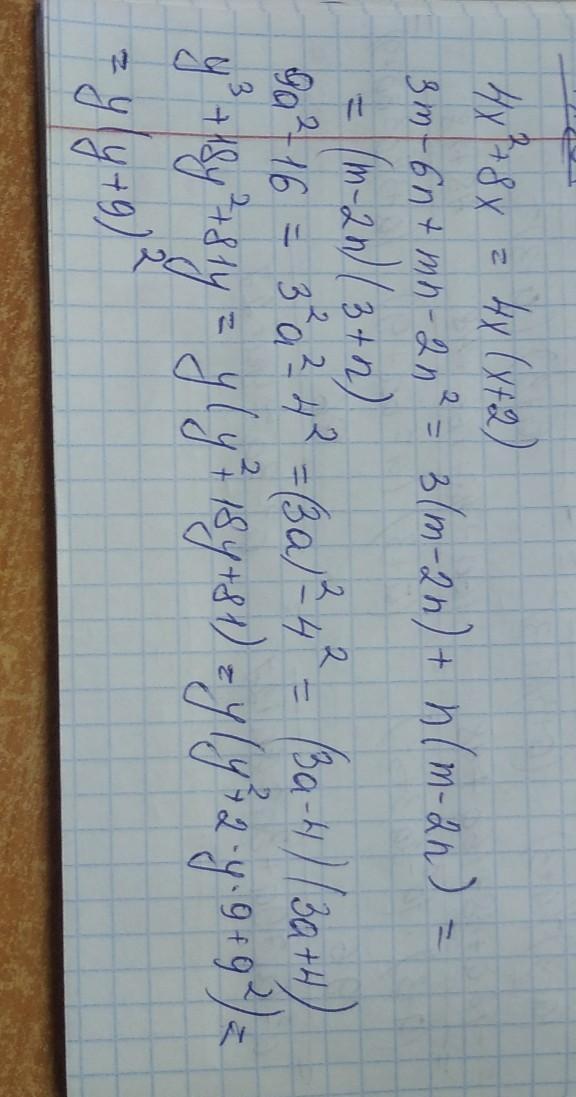 4x²+8x = 4x(x+2)
3m-6n+mn-2n² = 3(m-2n)+ n(m-2n) =
= (m-2n)(3+n)
9a²-16 = 3²a²-4² =(3a)²-4² = (3a-4)(3a+4)
y³+18y²+81y = y(y²+18y+81) =y(y²+2·y·9+9²)=
= y(y+9)²